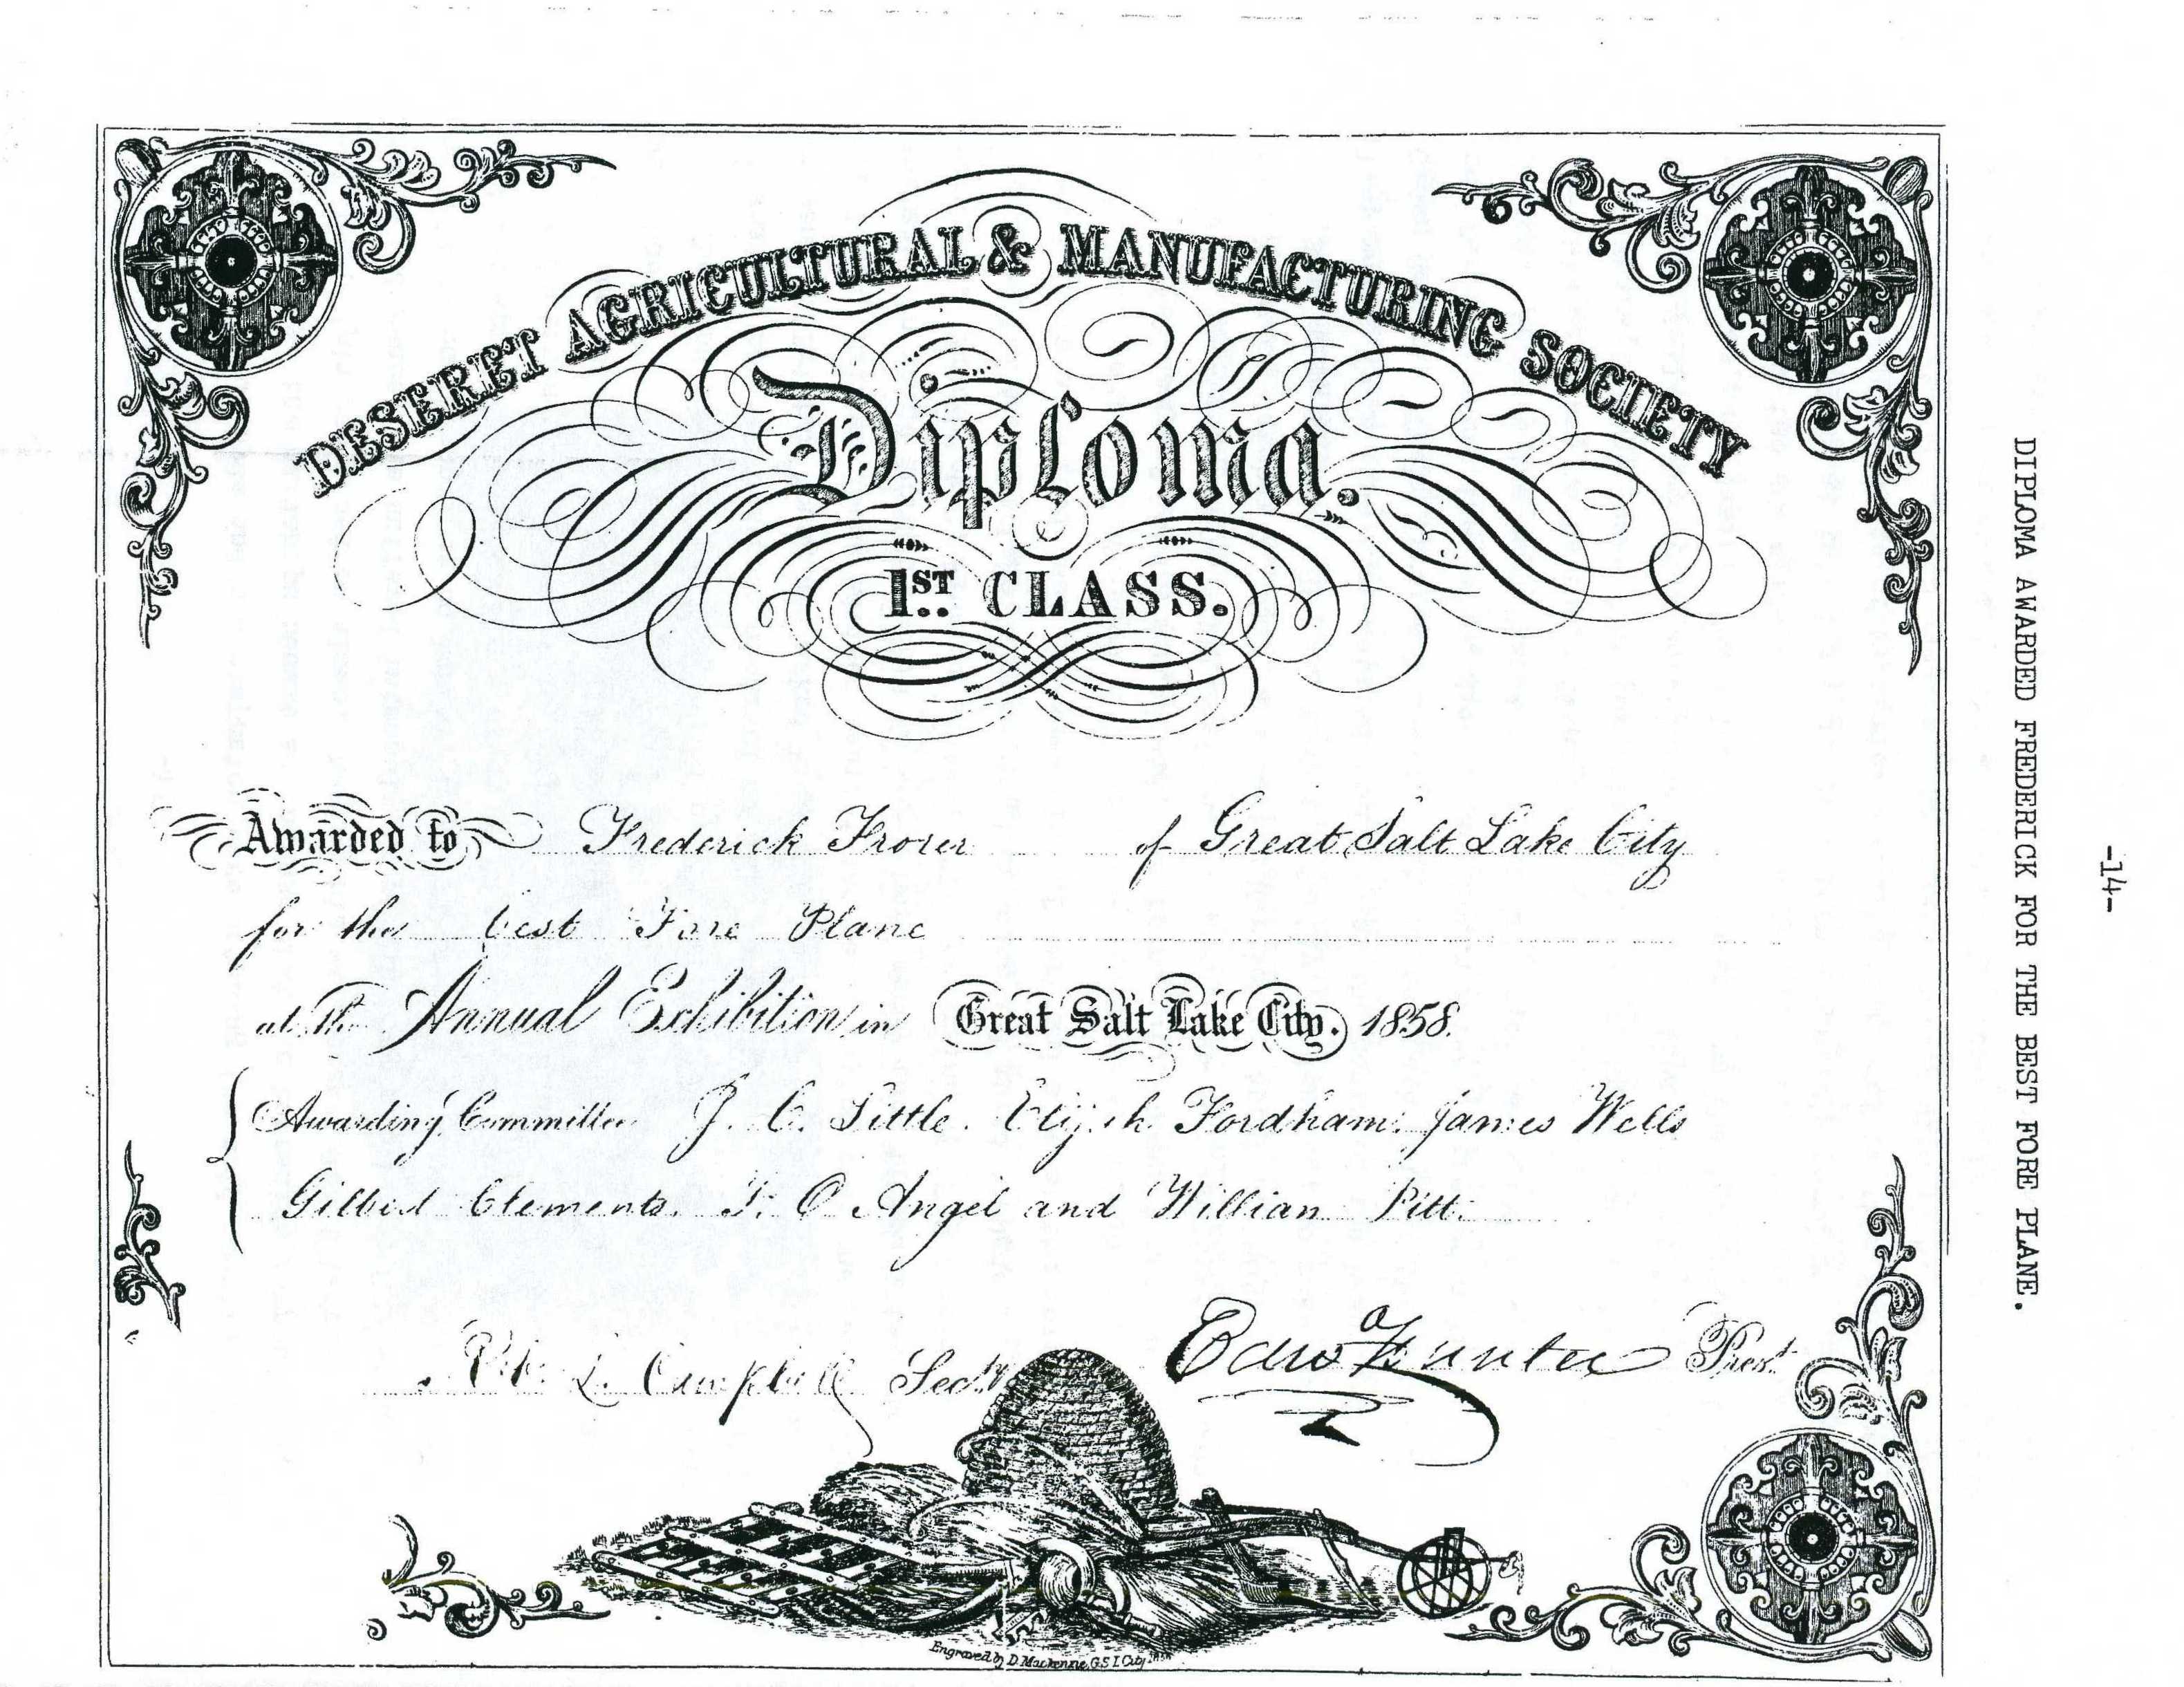 DESERET AGRICULTURAL & MANUFACTURING SOCIETY
Diploma.
1ST CLASS.
Awarded to Frederick Frorer of Great Salt Lake City
for the best Fore Plane
at the Annual Exhibition in Great Salt Lake City. 1858.
Awarding Committee J. C. Little. Elijah Fordham. James Wells
Gilbert Clements. T. O Angel and William Pitt.
L. Campbell Secty
Edwd Hunter Prest.
Engraved by D. Mackenzie, G.S.L.City
DIPLOMA AWARDED FREDERICK FOR THE BEST FORE PLANE.
-14-